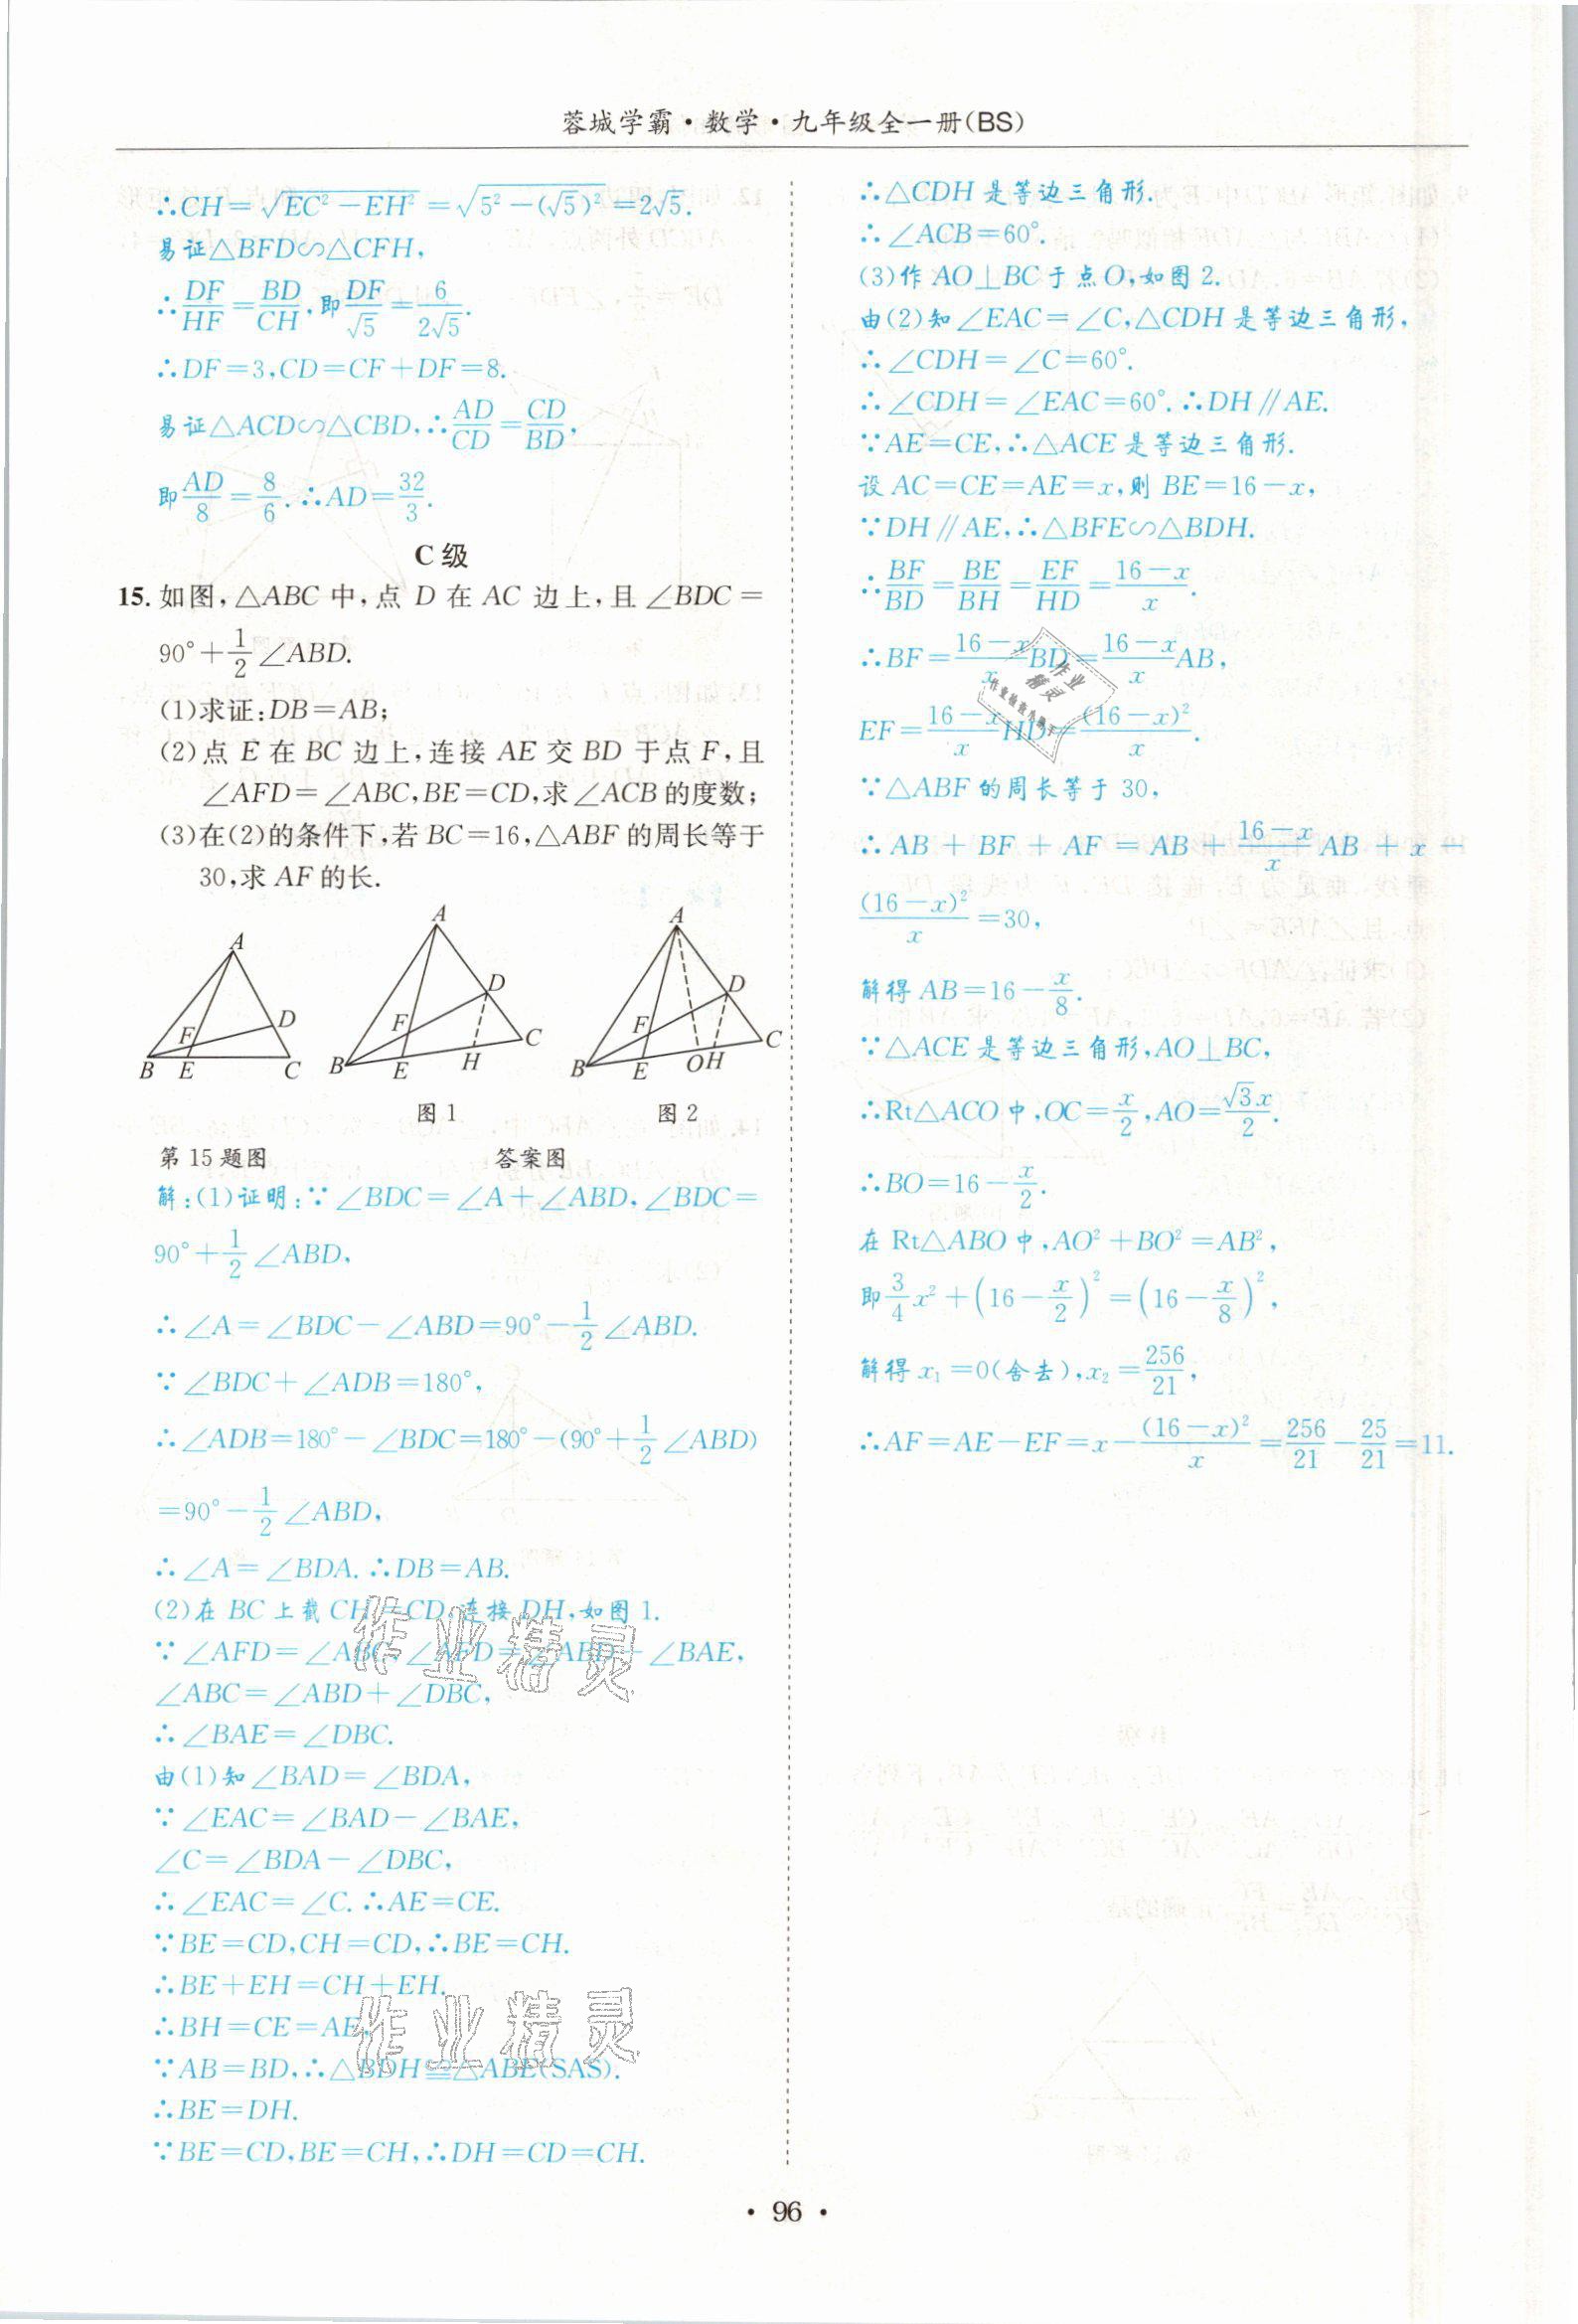 蓉城学霸·数学·九年级全一册(BS)
∴CH=√(EC²-EH²)=√(5²-(√5)²)=2√5.
易证△BFD∽△CFH,
∴DF/HF=BD/CH,即DF/√5=6/(2√5).
∴DF=3,CD=CF+DF=8.
易证△ACD∽△CBD,∴AD/CD=CD/BD,
即AD/8=8/6.∴AD=32/3.
C级
15.如图,△ABC中,点D在AC边上,且∠BDC=
90°+1/2∠ABD.
(1)求证:DB=AB;
(2)点E在BC边上,连接AE交BD于点F,且
∠AFD=∠ABC,BE=CD,求∠ACB的度数;
(3)在(2)的条件下,若BC=16,△ABF的周长等于
30,求AF的长.
A D F B E C
A D F B E H C
A D F B E O H C
图1 图2
第15题图 答案图
解:(1)证明:∵∠BDC=∠A+∠ABD,∠BDC=
90°+1/2∠ABD,
∴∠A=∠BDC-∠ABD=90°-1/2∠ABD.
∵∠BDC+∠ADB=180°,
∴∠ADB=180°-∠BDC=180°-(90°+1/2∠ABD)
=90°-1/2∠ABD,
∴∠A=∠BDA.∴DB=AB.
(2)在BC上截CH=CD,连接DH,如图1.
∵∠AFD=∠ABC,∠AFD=∠ABD+∠BAE,
∠ABC=∠ABD+∠DBC,
∴∠BAE=∠DBC.
由(1)知∠BAD=∠BDA,
∵∠EAC=∠BAD-∠BAE,
∠C=∠BDA-∠DBC,
∴∠EAC=∠C.∴AE=CE.
∵BE=CD,CH=CD,∴BE=CH.
∴BE+EH=CH+EH.
∴BH=CE=AE.
∵AB=BD,∴△BDH≌△ABE(SAS).
∴BE=DH.
∵BE=CD,BE=CH,∴DH=CD=CH.
∴△CDH是等边三角形.
∴∠ACB=60°.
(3)作AO⊥BC于点O,如图2.
由(2)知∠EAC=∠C,△CDH是等边三角形,
∴∠CDH=∠C=60°.
∴∠CDH=∠EAC=60°.∴DH∥AE.
∵AE=CE,∴△ACE是等边三角形.
设AC=CE=AE=x,则BE=16-x,
∵DH∥AE,∴△BFE∽△BDH.
∴BF/BD=BE/BH=EF/HD=(16-x)/x.
∴BF=(16-x)/x BD=(16-x)/x AB,
EF=(16-x)/x HD=(16-x)²/x.
∵△ABF的周长等于30,
∴AB+BF+AF=AB+(16-x)/x AB+x-
(16-x)²/x=30,
解得AB=16-x/8.
∵△ACE是等边三角形,AO⊥BC,
∴Rt△ACO中,OC=x/2,AO=√3x/2.
∴BO=16-x/2.
在Rt△ABO中,AO²+BO²=AB²,
即3/4x²+(16-x/2)²=(16-x/8)²,
解得x₁=0(舍去),x₂=256/21,
∴AF=AE-EF=x-(16-x)²/x=256/21-25/21=11.
作业精灵
作业精灵
作业精灵
·96·